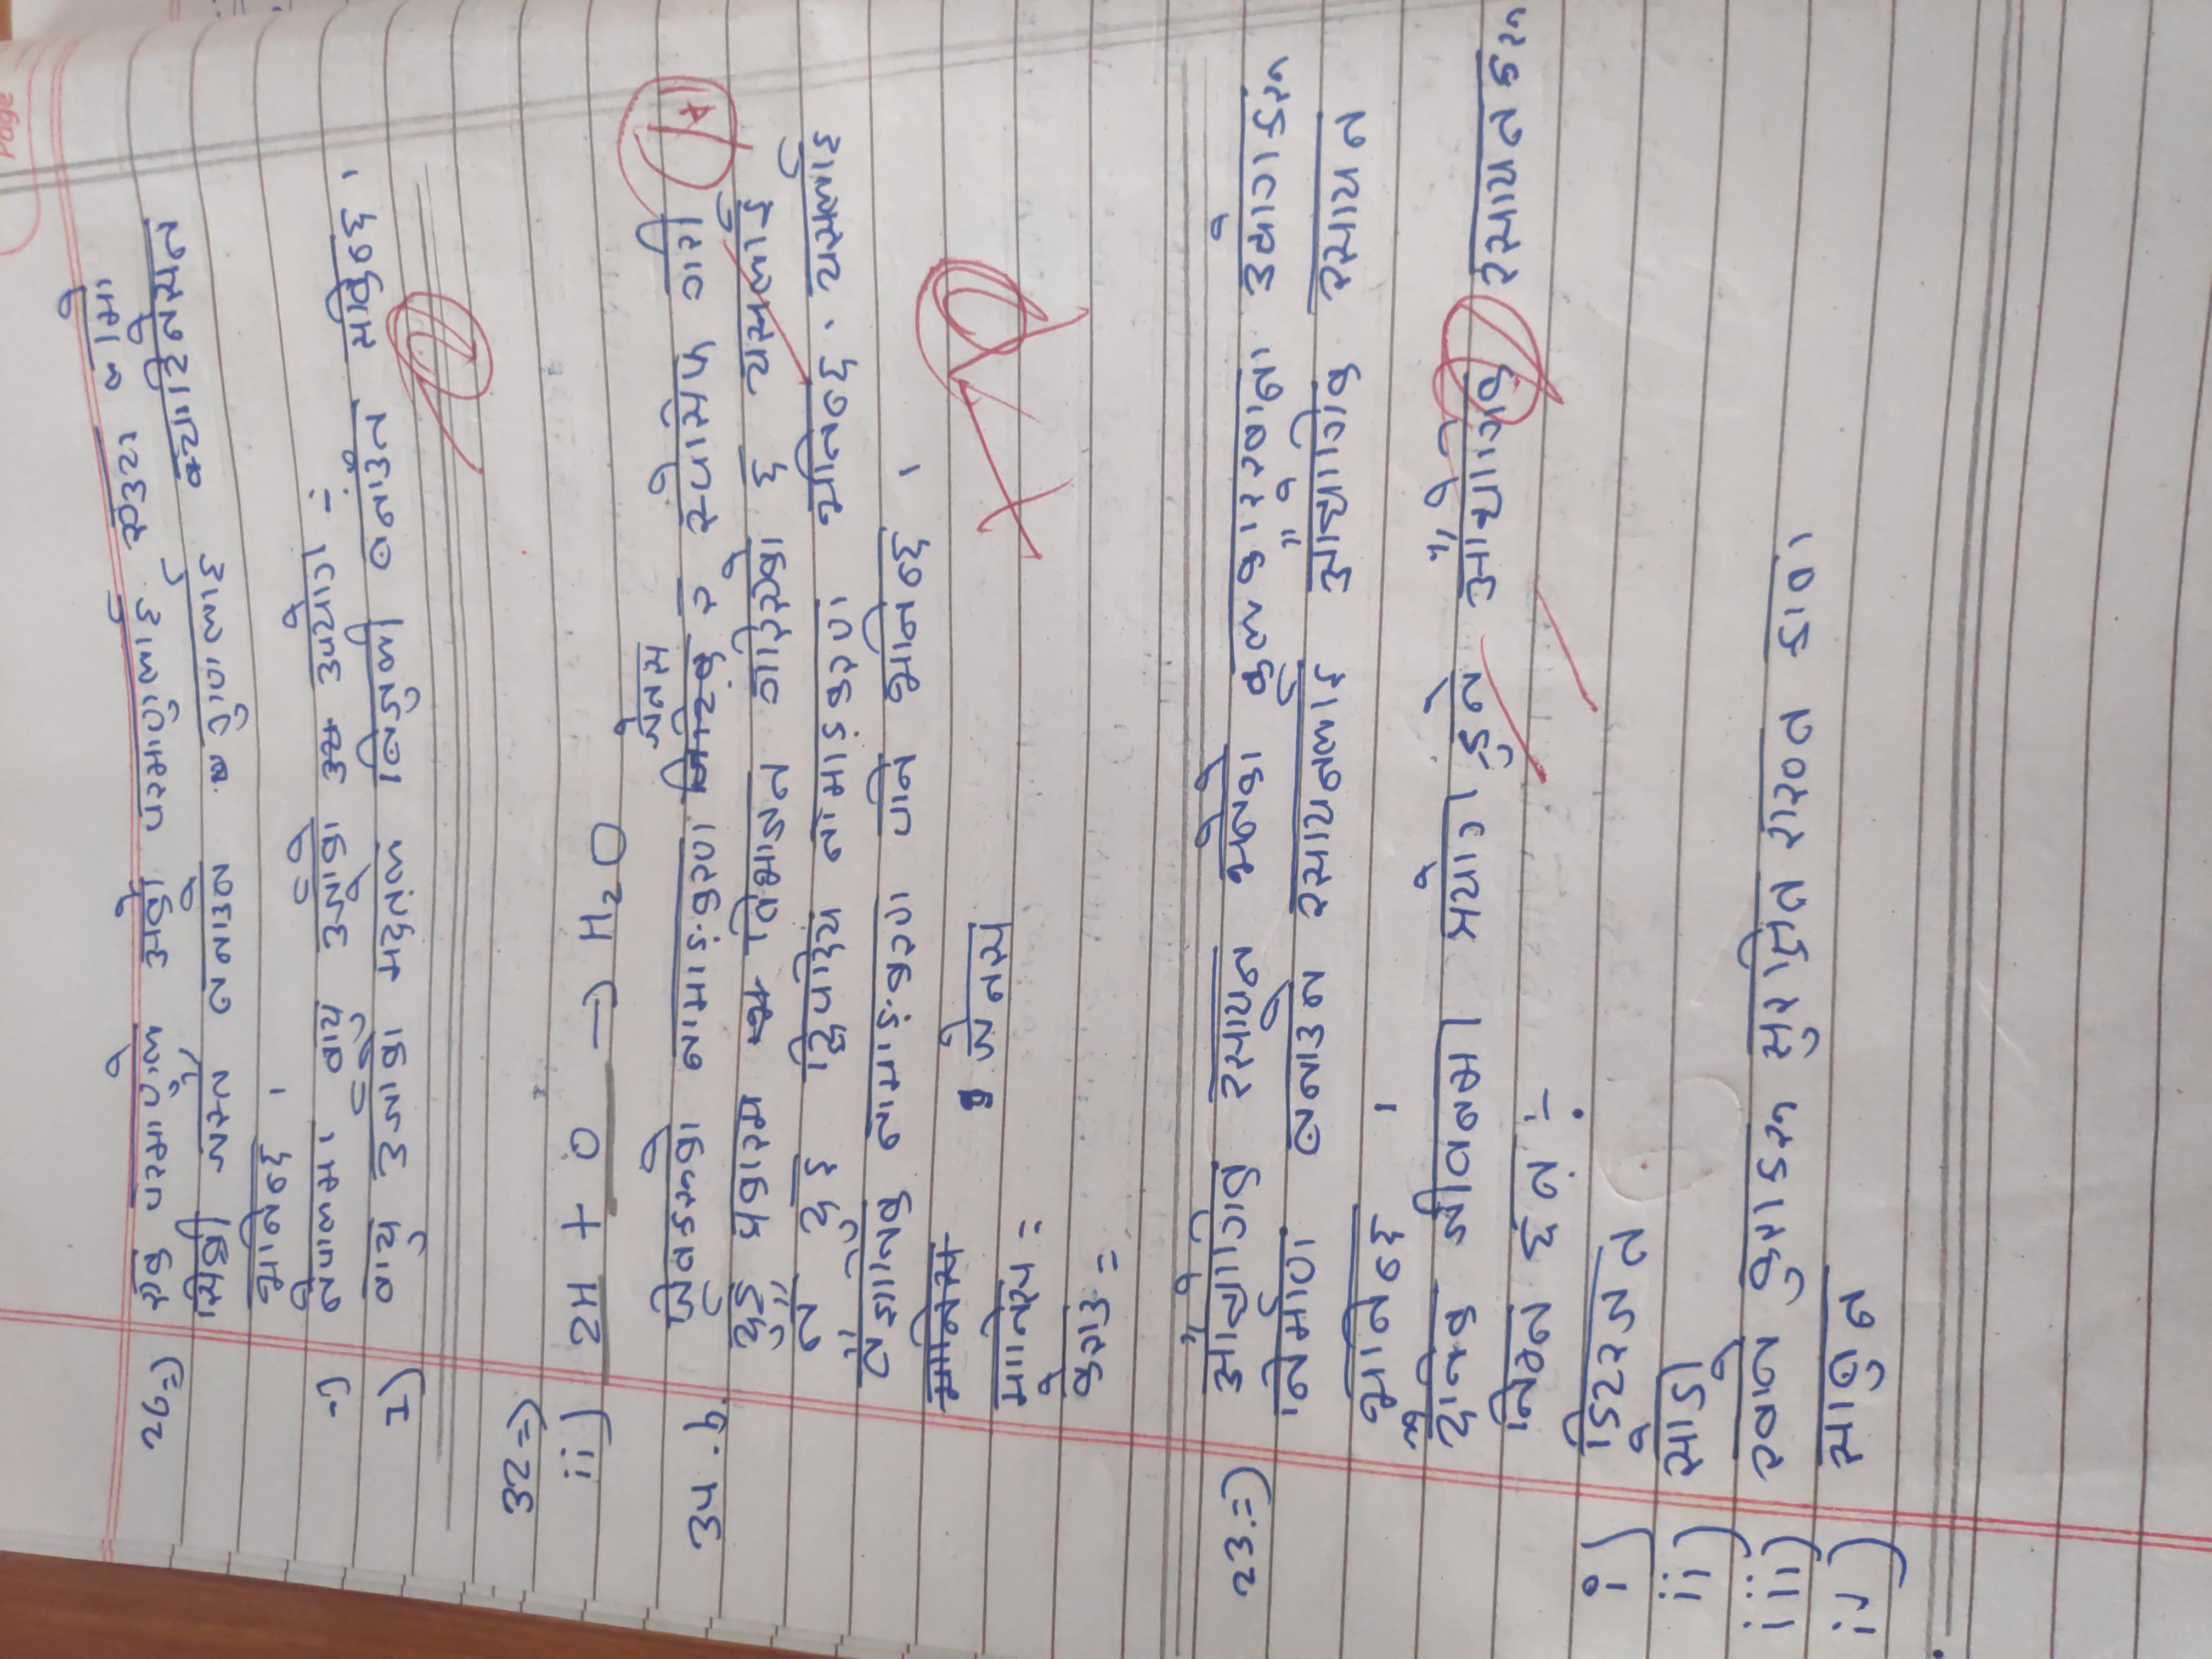 Page
26=) एक परमाणुले अर्को परमाणुलाई एउटा लामो
सिक्री जस्तै बनाउने गुणलाई क्याटिनेसन
भनिन्छ ।
-) नेपालमा वायु उर्जाको उपयोग :-
I) वायु उर्जाको मद्दतले बिजुली बनाउन सकिन्छ ।
32=)
ii) 2H + O → H2O
जेनस
34.b. जिवहरुको नामाङ्करण र स्पेसिफ गरी
दुई प्रकारम विभाजन गरिएको छ यसलाई
नै दुइ द्विपदिय नामाङ्करण भनिन्छ । यसलाई
वैज्ञानिक नामाङ्करण पनि भनिन्छ ।
मानिस जेनस
मानिस =
केराउ =
23.=) औद्योगिक रसायन भनेको कुलकारखाना उद्योगहरु
निर्माण बनाउने रसायनलाई औद्योगिक रसायन
भनिन्छ ।
दैनिक जीवनमा प्रयोग हुने औद्योगिक रसायनहरु
निम्न छन् :-
i) डिटरजन
ii) सोडा
iii) खाने कुराहरु सुरक्षित राख्न हाल्ने
iv) साबुन